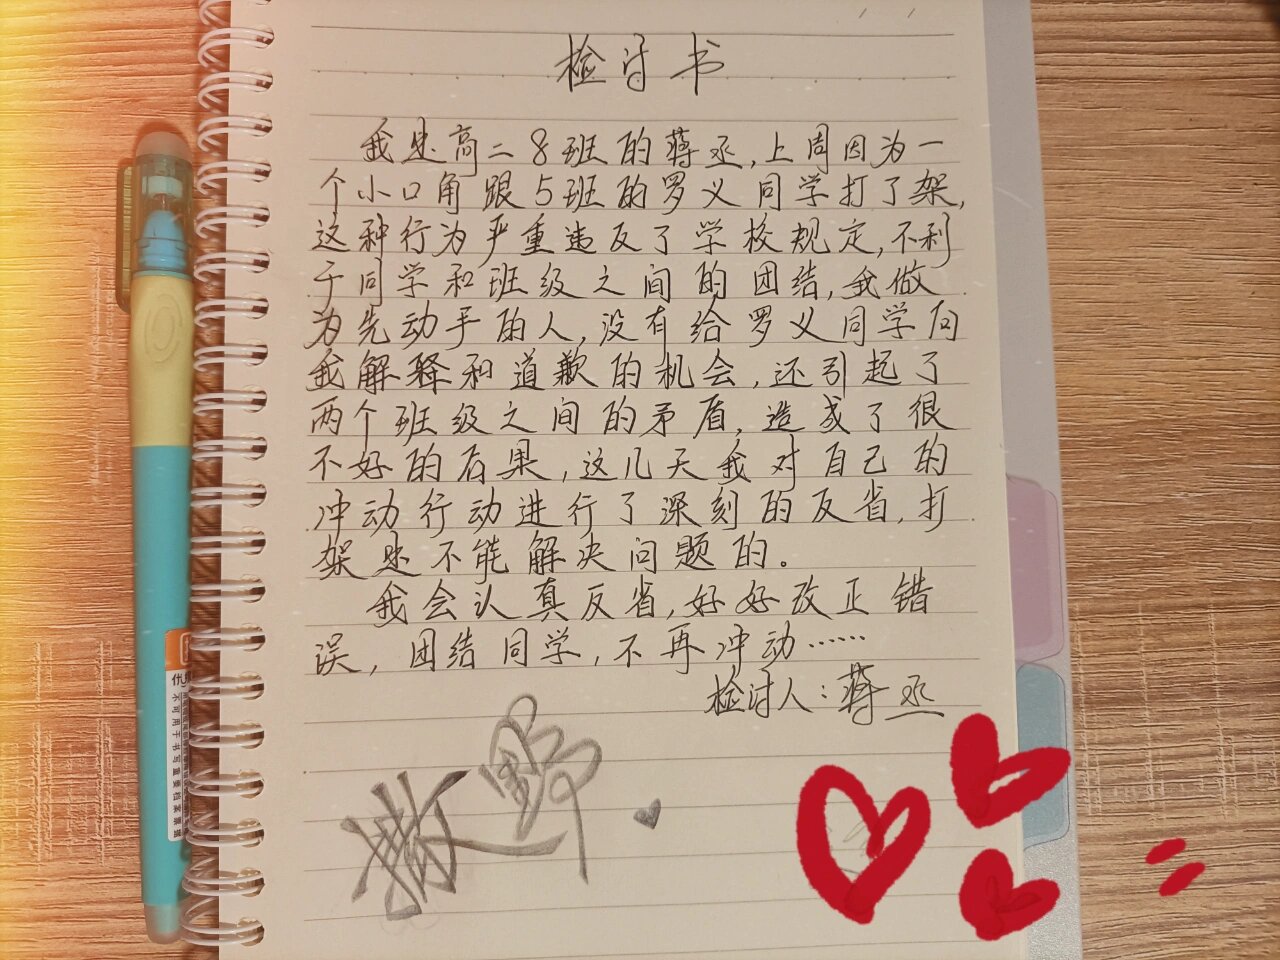 检讨书
我是高二8班的蒋丞,上周因为一
个小口角跟5班的罗义同学打了架,
这种行为严重违反了学校规定,不利
于同学和班级之间的团结,我做
为先动手的人,没有给罗义同学向
我解释和道歉的机会,还引起了
两个班级之间的矛盾,造成了很
不好的后果,这几天我对自己的
冲动行动进行了深刻的反省,打
架是不能解决问题的。
我会认真反省,好好改正错
误,团结同学,不再冲动……
检讨人:蒋丞
撒野
不可用于书写重要档案票据